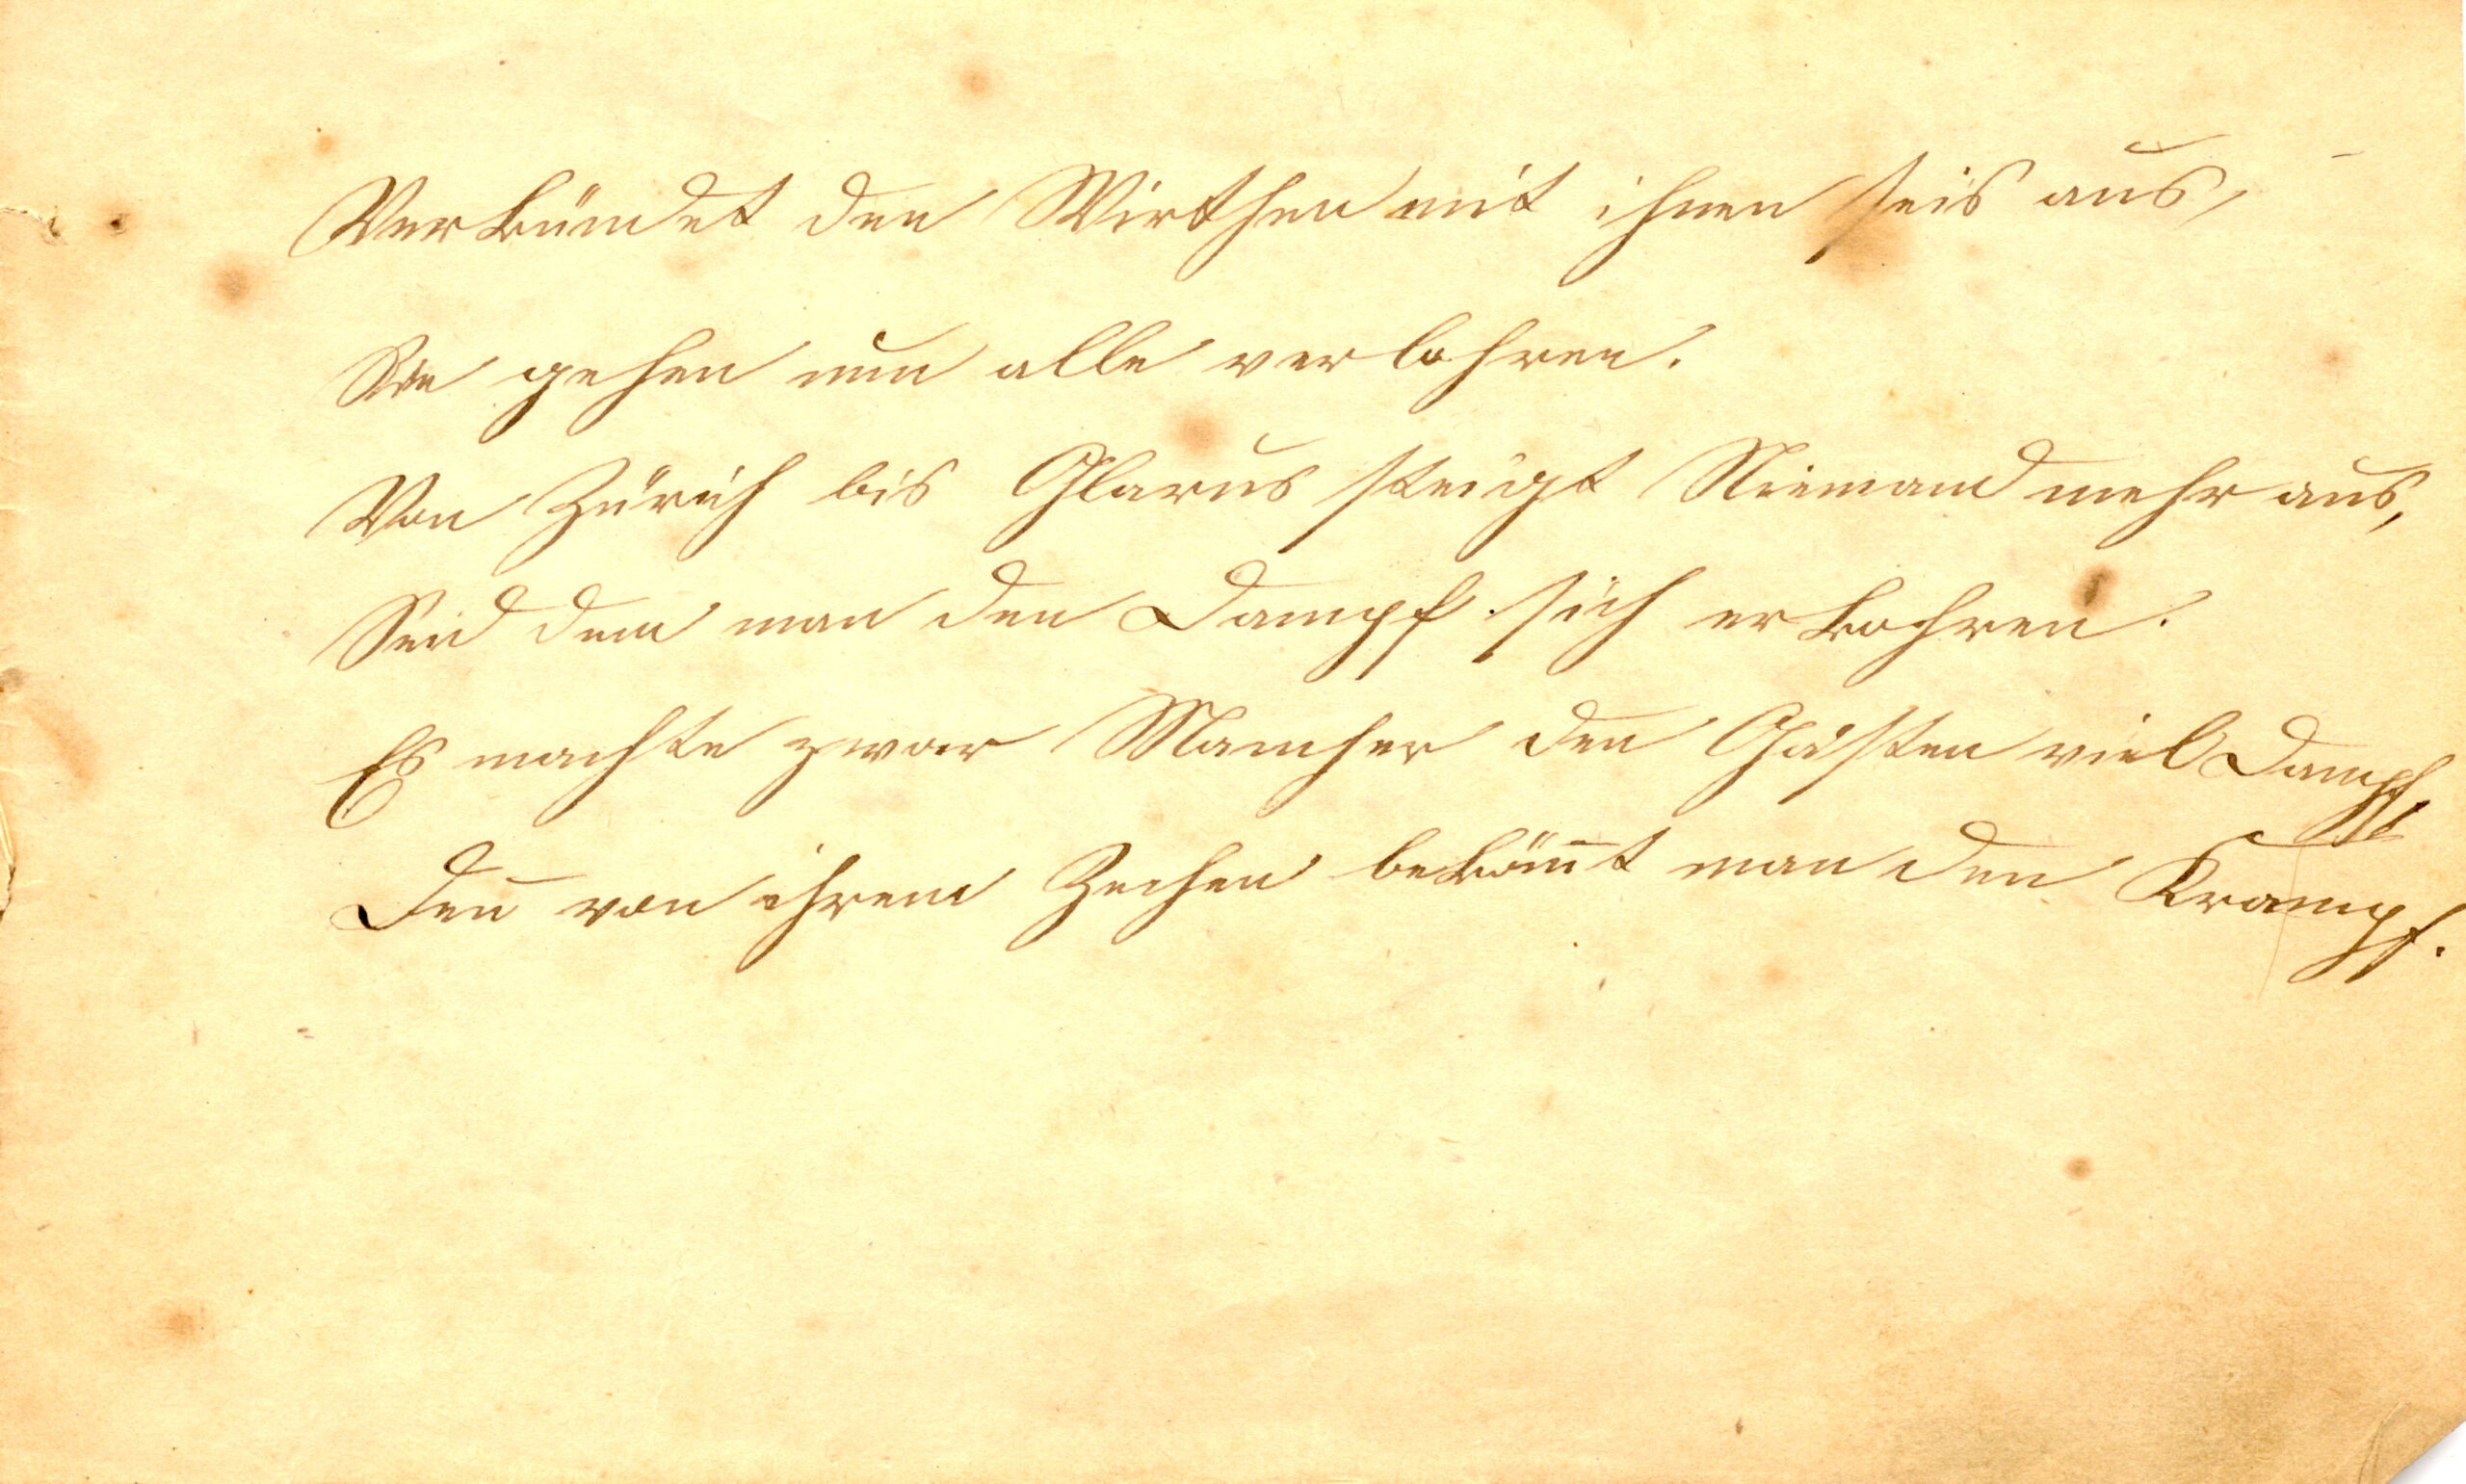 Verkündet den Wirthen mit ihnen seis aus,
Sie gehen nun alle verlohren.
Von Zürich bis Glarus steigt Niemand mehr aus,
Seid dem man den Dampf sich erkohren.
Es machte zwar Mancher den Gästen viel Dampf,
Den̄ von ihrem Zechen beköm̄t man den Krampf.